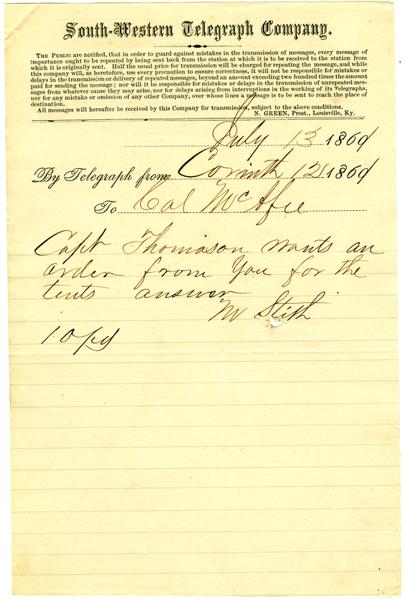 South-Western Telegraph Company.
THE PUBLIC are notified, that in order to guard against mistakes in the transmission of messages, every message of
importance ought to be repeated by being sent back from the station at which it is to be received to the station from
which it is originally sent. Half the usual price for transmission will be charged for repeating the message, and while
this company will, as heretofore, use every precaution to ensure correctness, it will not be responsible for mistakes or
delays in the transmission or delivery of repeated messages, beyond an amount exceeding two hundred times the amount
paid for sending the message; nor will it be responsible for mistakes or delays in the transmission of unrepeated mes-
sages from whatever cause they may arise, nor for delays arising from interruptions in the working of its Telegraphs,
nor for any mistake or omission of any other Company, over whose lines a message is to be sent to reach the place of
destination.
All messages will hereafter be received by this Company for transmission, subject to the above conditions.
N. GREEN, Prest., Louisville, Ky.
July 13 1864
By Telegraph from Corinth 12 1864
To Col McAfee
Capt Thomason wants an
order from You for the
tents answer
M Stith
10 pd